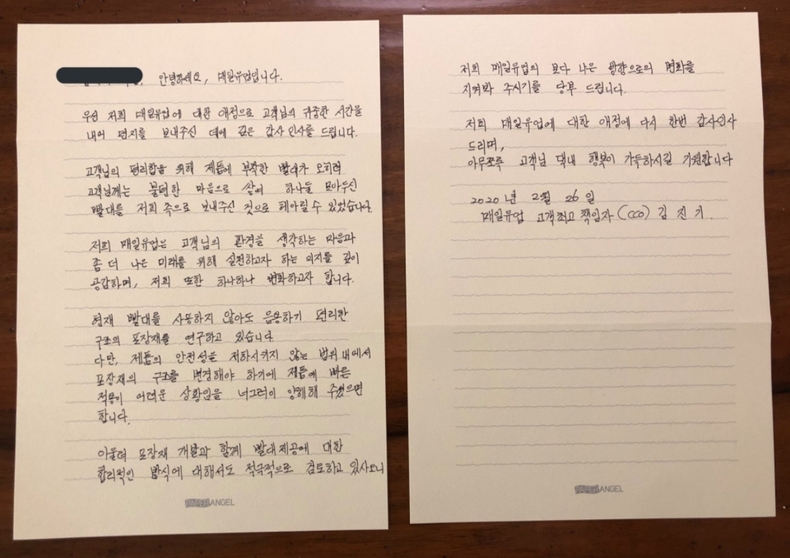 안녕하세요, 매일유업입니다.
우선 저희 매일유업에 대한 애정으로 고객님의 귀중한 시간을
내어 편지를 보내주신 데에 깊은 감사 인사를 드립니다.
고객님의 편리함을 위해 제품에 부착한 빨대가 오히려
고객님께는 불편한 마음으로 쌓여 하나둘 모아두신
빨대를 저희 쪽으로 보내주신 것으로 헤아릴 수 있었습니다.
저희 매일유업은 고객님의 환경을 생각하는 마음과
좀 더 나은 미래를 위해 실천하고자 하는 의지를 깊이
공감하며, 저희 또한 하나하나 변화하고자 합니다.
현재 빨대를 사용하지 않아도 음용하기 편리한
구조의 포장재를 연구하고 있습니다
다만, 제품의 안전성을 저하시키지 않는 범위 내에서
포장재의 구조를 변경해야 하기에 제품에 빠른
적용이 어려운 상황임을 너그러이 양해해 주셨으면
합니다.
아울러 포장재 개발과 함께 빨대 제공에 대한
합리적인 방식에 대해서도 적극적으로 검토하고 있사오니
ANGEL
저희 매일유업의 보다 나은 방향으로의 변화를
지켜봐 주시기를 당부 드립니다.
저희 매일유업에 대한 애정에 다시 한번 감사인사
드리며,
아무쪼록 고객님 댁내 행복이 가득하시길 기원합니다
2020년 2월 26일
매일유업 고객최고책임자(CCO) 김진기.
ANGEL